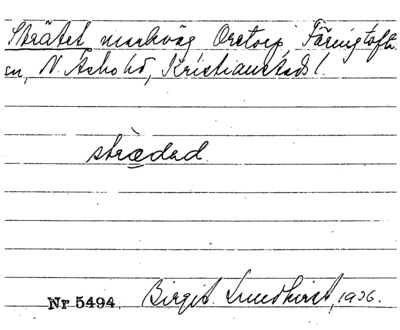 Strätet markväg Oretorp, Färingtofta
sn, N. Åsbo hd, Kristianstads l.
strædad
Nr 5494. Birgit Lundkvist, 1936.